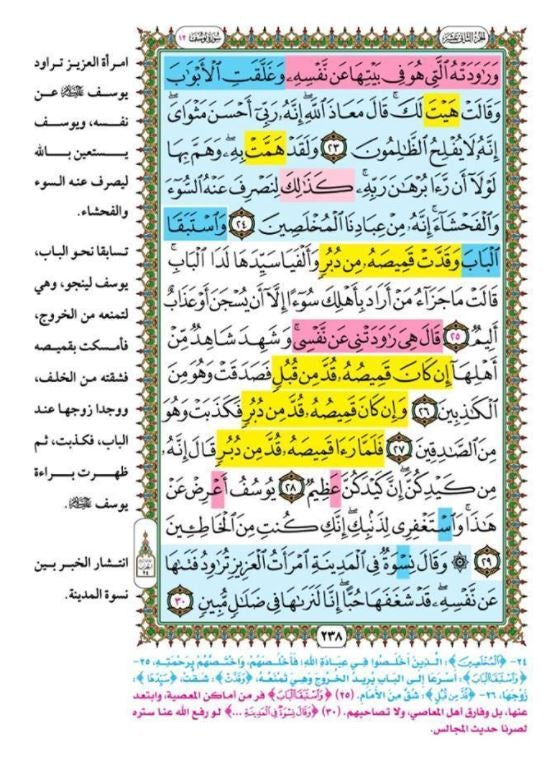 الجزء الثاني عشر
سورة يوسف ١٢
وَرَٰوَدَتْهُ ٱلَّتِى هُوَ فِى بَيْتِهَا عَن نَّفْسِهِۦ وَغَلَّقَتِ ٱلْأَبْوَٰبَ
وَقَالَتْ هَيْتَ لَكَ ۚ قَالَ مَعَاذَ ٱللَّهِ ۖ إِنَّهُۥ رَبِّىٓ أَحْسَنَ مَثْوَاىَ ۖ
إِنَّهُۥ لَا يُفْلِحُ ٱلظَّٰلِمُونَ ٢٣ وَلَقَدْ هَمَّتْ بِهِۦ ۖ وَهَمَّ بِهَا
لَوْلَآ أَن رَّءَا بُرْهَٰنَ رَبِّهِۦ ۚ كَذَٰلِكَ لِنَصْرِفَ عَنْهُ ٱلسُّوٓءَ
وَٱلْفَحْشَآءَ ۚ إِنَّهُۥ مِنْ عِبَادِنَا ٱلْمُخْلَصِينَ ٢٤ وَٱسْتَبَقَا
ٱلْبَابَ وَقَدَّتْ قَمِيصَهُۥ مِن دُبُرٍ وَأَلْفَيَا سَيِّدَهَا لَدَا ٱلْبَابِ ۚ
قَالَتْ مَا جَزَآءُ مَنْ أَرَادَ بِأَهْلِكَ سُوٓءًا إِلَّآ أَن يُسْجَنَ أَوْ عَذَابٌ
أَلِيمٌ ٢٥ قَالَ هِىَ رَٰوَدَتْنِى عَن نَّفْسِى ۚ وَشَهِدَ شَاهِدٌ مِّنْ
أَهْلِهَآ إِن كَانَ قَمِيصُهُۥ قُدَّ مِن قُبُلٍ فَصَدَقَتْ وَهُوَ مِنَ
ٱلْكَٰذِبِينَ ٢٦ وَإِن كَانَ قَمِيصُهُۥ قُدَّ مِن دُبُرٍ فَكَذَبَتْ وَهُوَ
مِنَ ٱلصَّٰدِقِينَ ٢٧ فَلَمَّا رَءَا قَمِيصَهُۥ قُدَّ مِن دُبُرٍ قَالَ إِنَّهُۥ
مِن كَيْدِكُنَّ ۖ إِنَّ كَيْدَكُنَّ عَظِيمٌ ٢٨ يُوسُفُ أَعْرِضْ عَنْ
هَٰذَا ۚ وَٱسْتَغْفِرِى لِذَنۢبِكِ ۖ إِنَّكِ كُنتِ مِنَ ٱلْخَاطِـِٔينَ
٢٩ ۞ وَقَالَ نِسْوَةٌ فِى ٱلْمَدِينَةِ ٱمْرَأَتُ ٱلْعَزِيزِ تُرَٰوِدُ فَتَىٰهَا
عَن نَّفْسِهِۦ ۖ قَدْ شَغَفَهَا حُبًّا ۖ إِنَّا لَنَرَىٰهَا فِى ضَلَٰلٍ مُّبِينٍ ٣٠
٢٣٨
امرأة العزيز تراود
يوسف عليه السلام عن
نفسه، ويوسف
يستعين بالله
ليصرف عنه السوء
والفحشاء.
تسابقا نحو الباب،
يوسف لينجو، وهي
لتمنعه من الخروج،
فأمسكت بقميصه
فشقته من الخلف،
ووجدا زوجها عند
الباب، فكذبت، ثم
ظهرت براءة
يوسف عليه السلام.
انتشار الخبر بين
نسوة المدينة.
٢٤- ﴿الْمُخْلَصِينَ﴾: الَّذِينَ أَخْلَصُوا فِي عِبَادَةِ اللهِ؛ فَأَخْلَصَهُمْ، وَاخْتَصَّهُمْ بِرَحْمَتِهِ، ٢٥-
﴿وَاسْتَبَقَا الْبَابَ﴾: أَسْرَعَا إِلَى البَابِ يُرِيدُ الخُرُوجَ وَهِيَ تَمْنَعُهُ، ﴿وَقَدَّتْ﴾: شَقَّتْ، ﴿سَيِّدَهَا﴾:
زَوْجَهَا، ٢٦- ﴿قُدَّ مِن قُبُلٍ﴾: شُقَّ مِنَ الأَمَامِ. (٢٥) ﴿وَاسْتَبَقَا الْبَابَ﴾ فر من أماكن المعصية، وابتعد
عنها، بل وفارق أهل المعاصي، ولا تصاحبهم. (٣٠) ﴿وَقَالَ نِسْوَةٌ فِي الْمَدِينَةِ ...﴾ لو رفع الله عنا ستره
لصرنا حديث المجالس.